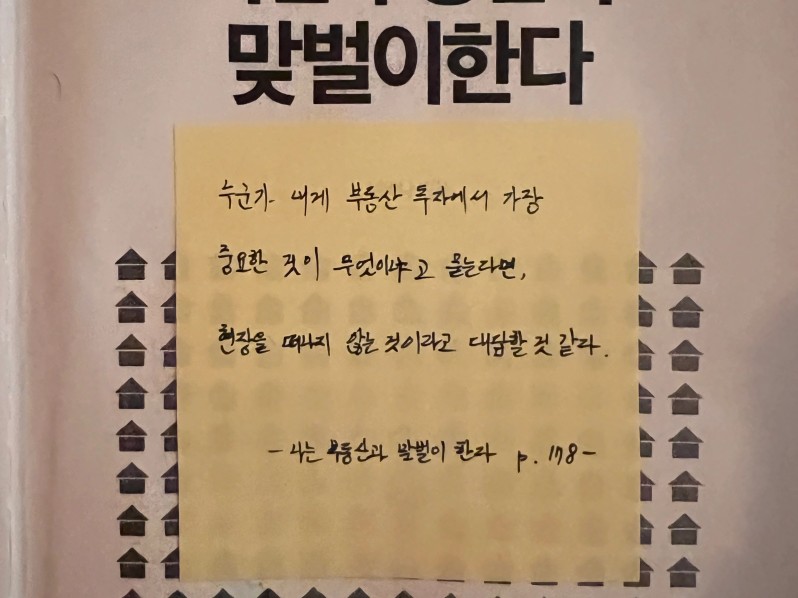 맞벌이한다
누군가 내게 부동산 투자에서 가장
중요한 것이 무엇이냐고 묻는다면,
현장을 떠나지 않는 것이라고 대답할 것 같다.
- 나는 부동산과 맞벌이 한다 p. 178 -